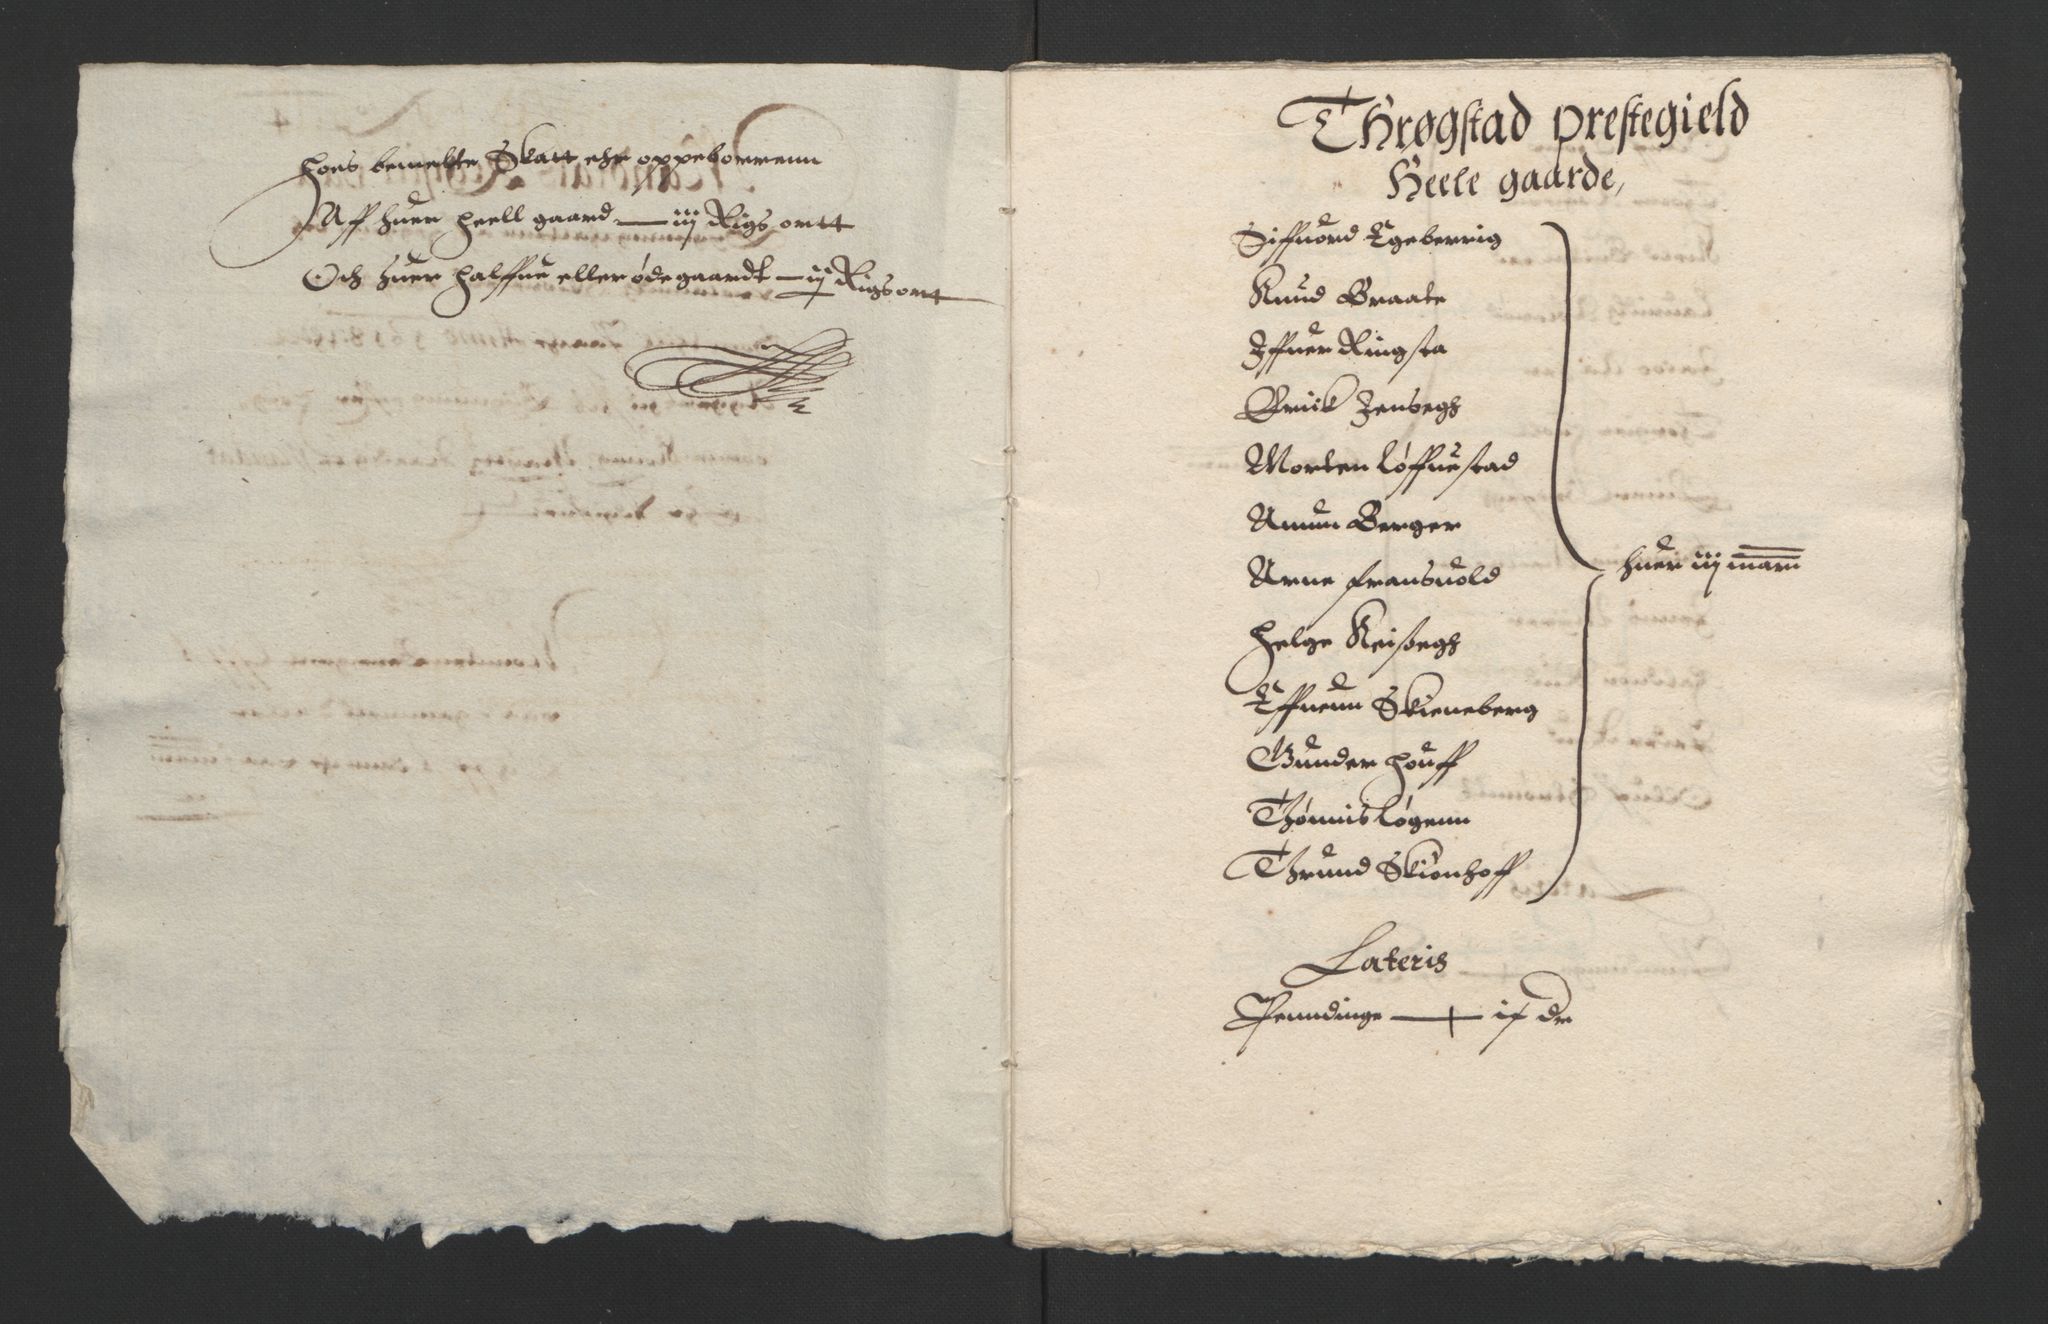 hoes bemelte Skatt ehr oppeborrenn
Aff huer heell gaard — iij Rigs ortt
Och huer halffue eller øde gaardt — ij Rigs ort
Thrøgstad prestegield
Heele gaarde,
Siffuord Egeberrig
Knud Braate
Iffuer Ringsta
Erick Jensegh
Morten Løffuestad
Amun Berger
Arne fransuold
Helge Keisegh
Effuenn Skieneberg
Gunder houff
Thónnis Løgenn
Thrund Skionhoff
huer iij march
Lateris
Penndinge — ix dr